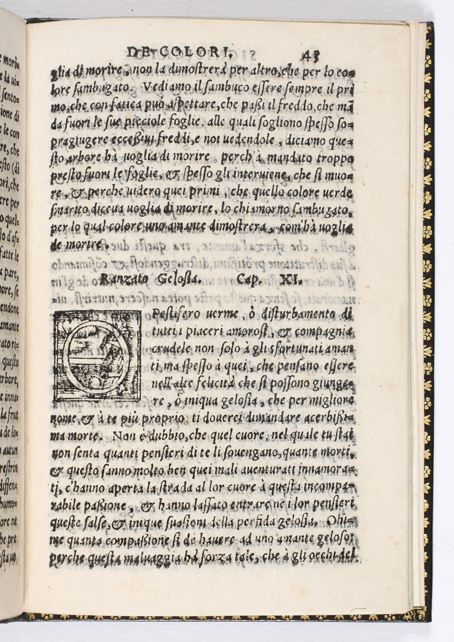 DE COLORI. 43
glia di morire, non la dimostrerà per altro, che per lo co-
lore sambugato. Vediamo il sambuco essere sempre il pri
mo, che con fatica può aspettare, che passi il freddo, che mã
da fuori le sue picciole foglie, alle quali sogliono spesso so-
pragiugere eccessiui freddi, e noi uedendole, diciamo que-
sto arbore hà uoglia di morire, perch'à mandato troppo
presto fuori le foglie, & spesso gli interuiene, che si muo-
re, & perche uidero quei primi, che quello colore uerde
smarito diceua uoglia di morire, lo chiamorno sambugato,
per lo qual colore uno amante dimostrera, com'hà uoglia
de morire.
Ranzato Gelosia. Cap. XI.
O Pestifero uerme, ò disturbamento di
tutti i piaceri amorosi, & compagnia
crudele non solo à gli sfortunati aman
ti, ma spesso à quei, che pensano essere
nell'alte felicità che si possono giunge-
re, ò iniqua gelosia, che per migliore
nome, & à te più proprio, ti douerei dimandare acerbissi-
ma morte. Non è dubbio, che quel cuore, nel quale tu stai
non senta quanti pensieri di te li souengano, quante morti,
& questo sanno molto ben quei mali auenturati innamora-
ti, c'hanno aperta la strada al lor cuore à questa incompa-
rabile passione, & hanno lassato entrare ne i lor pensieri
queste false, & inique suasioni della perfida gelosia. Ohi-
me quanta compassione si de hauere ad uno amante geloso,
perche questa maluaggia hà forza tale, che à gli occhi del